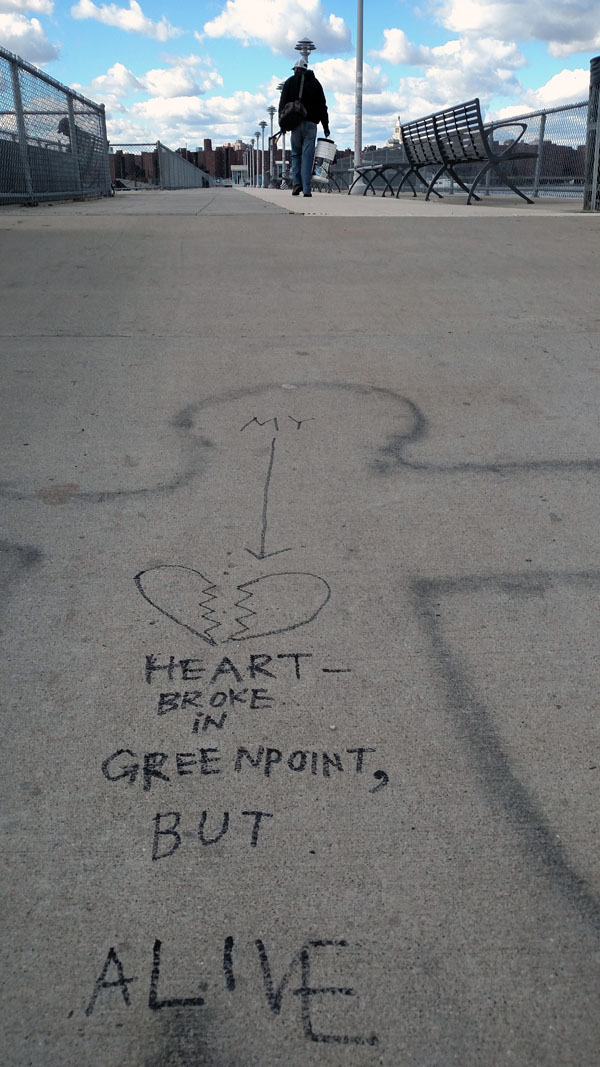 MY
HEART-
BROKE
iN
GREENPOINT,
BUT
ALIVE